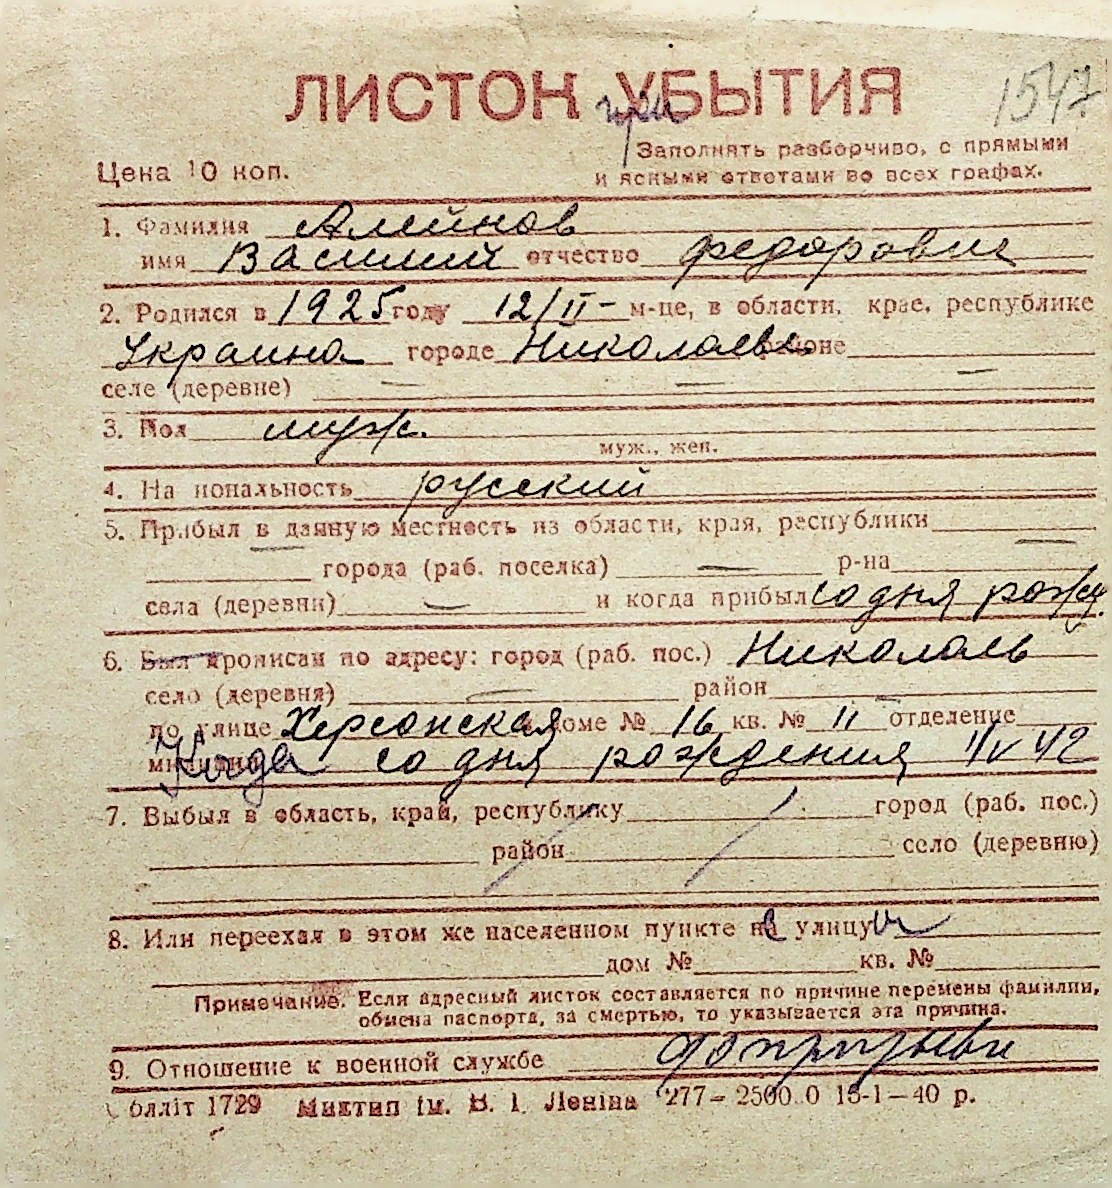 ЛИСТОК УБЫТИЯ
при
1547
Цена 10 коп.
Заполнять разборчиво, с прямыми
и ясными ответами во всех графах.
1. Фамилия Алейнов
имя Василий отчество Федорович
2. Родился в 1925 году 12/II - м-це, в области, крае, республике
Украина городе Николаеве районе
селе (деревне) — — —
3. Пол муж.
муж., жен.
4. На иональность русский
5. Прибыл в данную местность из области, края, республики —
— города (раб. поселка) — р-на
села (деревни) — и когда прибыл со дня рожд.
6. Был прописан по адресу: город (раб. пос.) Николаев
село (деревня) — район —
по улице Херсонская в доме № 16 кв. № 11 отделение
милиции Когда со дня рождения 1/IV 42
7. Выбыл в область, край, республику город (раб. пос.)
район село (деревню)
8. Или переехал в этом же населенном пункте на улицу
дом № кв. №
Примечание. Если адресный листок составляется по причине перемены фамилии,
обмена паспорта, за смертью, то указывается эта причина.
9. Отношение к военной службе допризывн
блліт 1729 Миктип ім. В. І. Леніна 277— 2500 0 15-1—40 р.